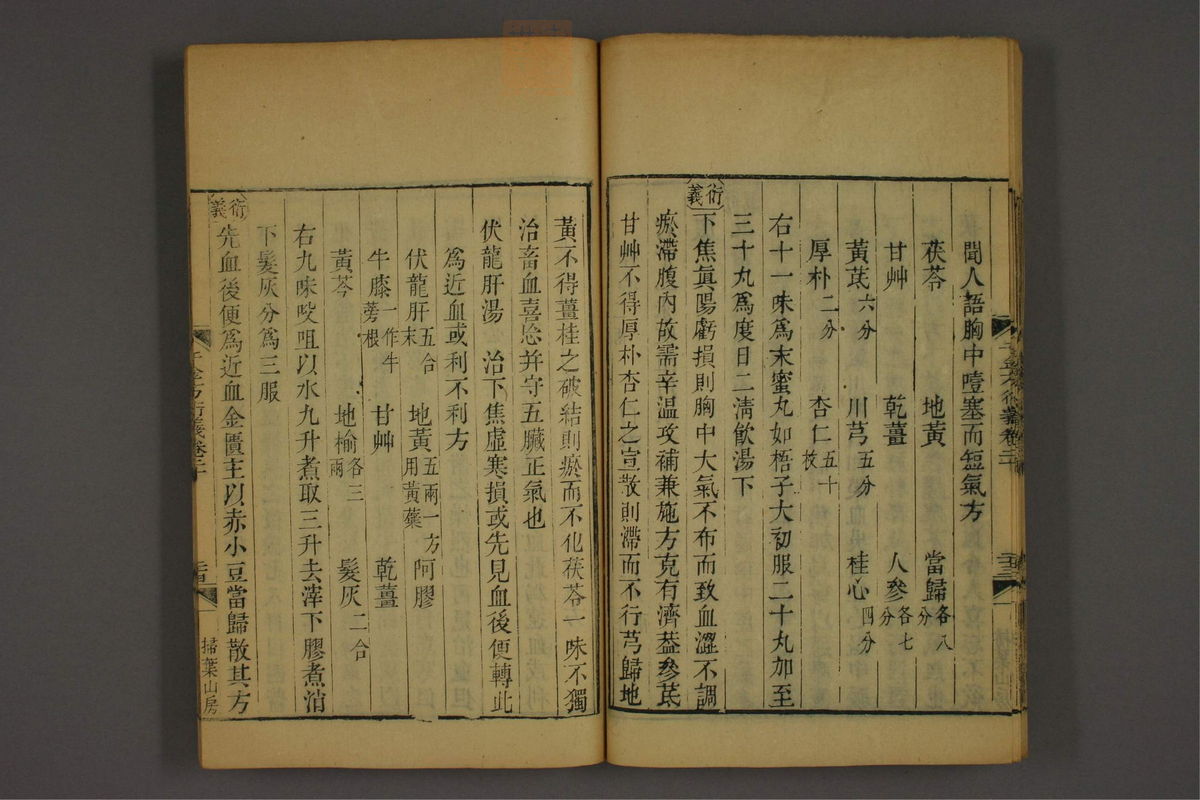 聞人語胸中噎塞而短氣方
茯苓　地黃　當歸各八分
甘艸　乾薑　人參各七分
黃芪六分　川芎五分　桂心四分
厚朴二分　杏仁五十枚
右十一味爲末蜜丸如梧子大初服二十丸加至
三十丸爲度日二淸飮湯下
衍義
下焦眞陽虧損則胸中大氣不布而致血澀不調
瘀滯腹內故需辛溫攻補兼施方克有濟葢參芪
甘艸不得厚朴杏仁之宣散則滯而不行芎歸地
黃不得薑桂之破結則瘀而不化茯苓一味不獨
治畜血喜忘并守五臟正氣也
伏龍肝湯　治下焦虛寒損或先見血後便轉此
爲近血或利不利方
伏龍肝五合末　地黃五兩一方用黃蘗　阿膠
牛膝一作牛蒡根　甘艸　乾薑
黃芩　地榆各三兩　髮灰二合
右九味㕮咀以水九升煮取三升去滓下膠煮消
下髮灰分爲三服
衍義
先血後便爲近血金匱主以赤小豆當歸散其方
千金方衍義卷二十
掃葉山房